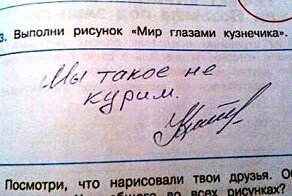 3. Выполни рисунок «Мир глазами кузнечика».
Мы такое не
курим.
Посмотри, что нарисовали твои друзья. Об
во всех рисунках?